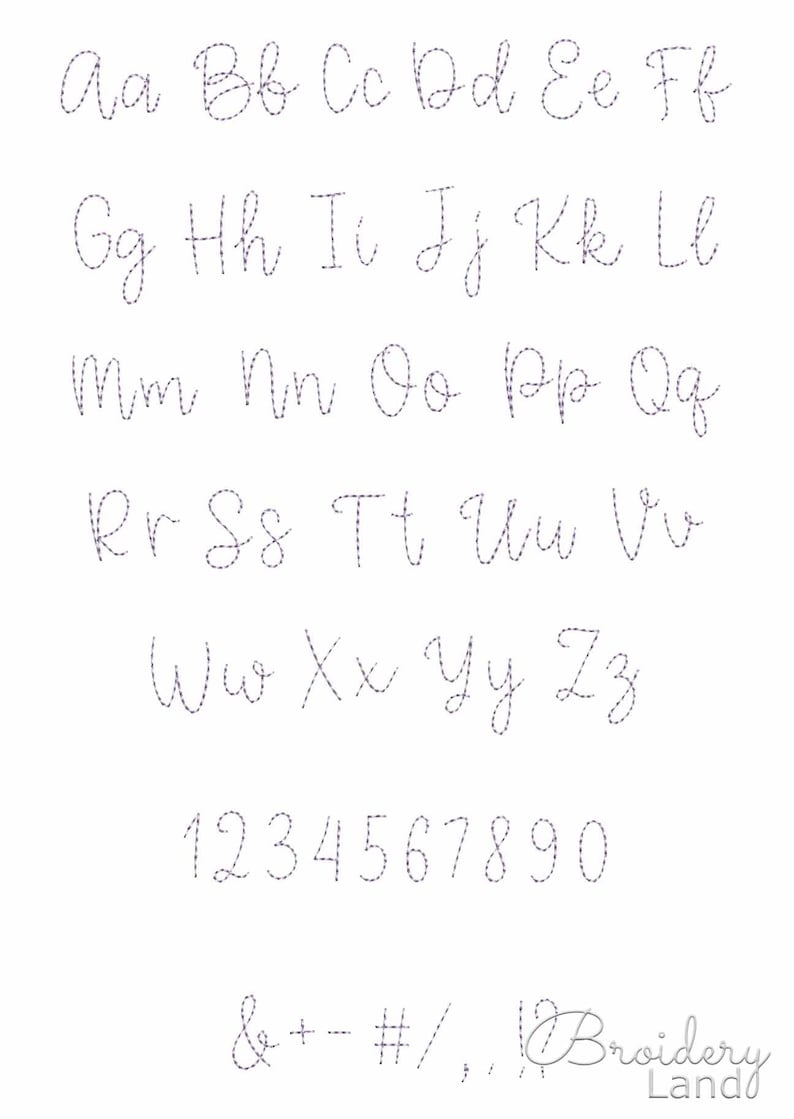 Aa Bb Cc Dd Ee Ff
Gg Hh Ii Jj Kk Ll
Mm Nn Oo Pp Qq
Rr Ss Tt Uu Vv
Ww Xx Yy Zz
1234567890
&+-#/,.!?
Broidery
Land